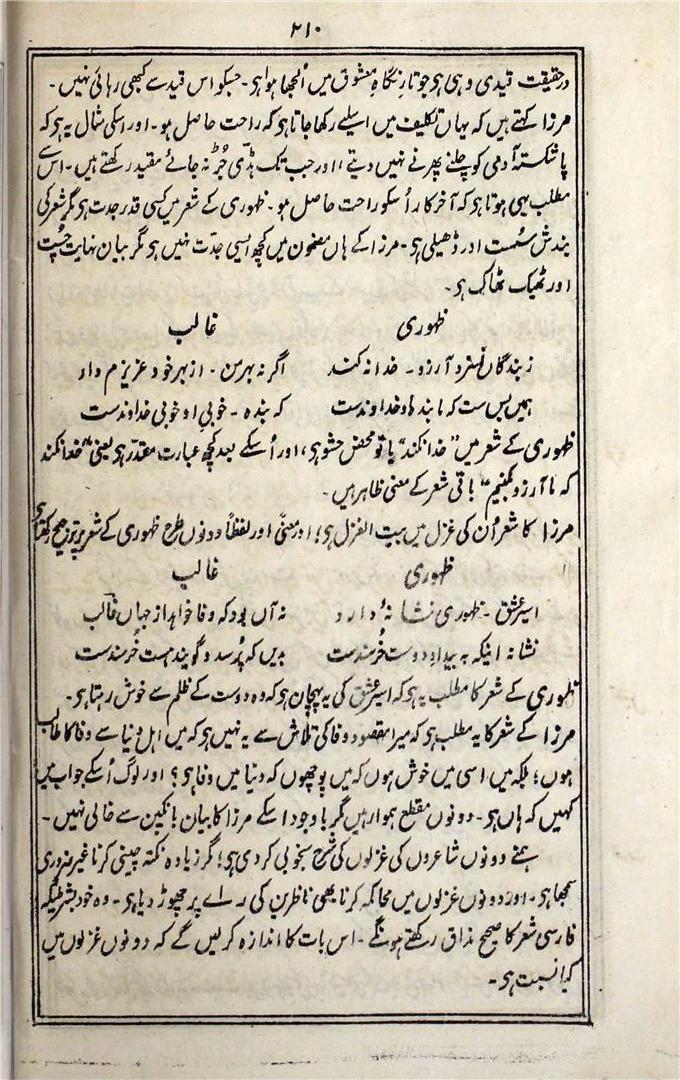 ۲۱۰
درحقیقت قیدی وہی ہو جو تارِ نگاہِ معشوق میں اُلجھا ہوا ہو۔ جسکو اس قید سے کبھی رہائی نہیں۔
مرزا کہتے ہیں کہ یہاں تکلیف میں اسلیے رکھا جاتا ہو کہ راحت حاصل ہو۔ اور اسکی مثال یہ ہو کہ
پا شکستہ آدمی کو چلنے پھرنے نہیں دیتے، اور جب تک ہڈّی جُڑ نہ جائے مقید رکھتے ہیں۔ اس سے
مطلب یہی ہوتا ہو کہ آخرکار اُسکو راحت حاصل ہو۔ ظہوری کے شعر میں کسی قدر جدت ہو مگر شعر کی
بندش سُست اور ڈھیلی ہو۔ مرزا کے ہاں مضمون میں کچھ ایسی جدّت نہیں ہو مگر بیان نہایت چُست
اور ٹھیک ٹھاک ہو۔
ظہوری غالب
ز بندگان نسزد آرزو۔ خدا نہ کند اگر نہ بہر من۔ از بہر خود عزیزم دار
ہمیں بس ست کہ ما بندہ او خداوندست کہ بندہ۔ خوبیِ او خوبیِ خداوندست
ظہوری کے شعر میں "خدا نکند" یا تو محض حشو ہو، اور اُسکے بعد کچھ عبارت مقدّر ہو یعنی "خدا نکند
کہ ما آرزو بکنیم" باقی شعر کے معنی ظاہر ہیں۔
مرزا کا شعر اُن کی غزل میں بیت الغزل ہو؛ اور معنیً اور لفظاً دونوں طرح ظہوری کے شعر پر ترجیح رکھتا ہو
ظہوری غالب
اسیر عشق۔ ظہوری نشانۂ دارد نہ آں بود کہ وفا خواہد از جہاں غالب
نشانہ اینکہ بہ بیدادِ دوست خُرسندست بدیں کہ پُرسد و گویند ہست خُرسندست
ظہوری کے شعر کا مطلب یہ ہو کہ اسیرِ عشق کی یہ پہچان ہو کہ وہ دوست کے ظلم سے خوش رہتا ہو۔
مرزا کے شعر کا یہ مطلب ہو کہ میرا مقصود وفا کی تلاش سے یہ نہیں ہو کہ میں اہلِ دنیا سے وفا کا طالب
ہوں؛ بلکہ میں اسی میں خوش ہوں کہ میں پوچھوں کہ دنیا میں وفا ہو؟ اور لوگ اُسکے جواب میں
کہیں کہ ہاں ہو۔ دونوں مقطع ہموار ہیں مگر باوجود اسکے مرزا کا بیان بانکپن سے خالی نہیں۔
ہمنے دونوں شاعروں کی غزلوں کی شرح بخوبی کردی ہو؛ مگر زیادہ نکتہ چینی کرنا غیر ضروری
سمجھا ہو۔ اور دونوں غزلوں میں محاکمہ کرنا بھی ناظرین کی راے پر چھوڑ دیا ہو۔ وہ خود بشرطیکہ
فارسی شعر کا صحیح مذاق رکھتے ہونگے۔ اس بات کا اندازہ کرلیں گے کہ دونوں غزلوں میں
کیا نسبت ہو۔